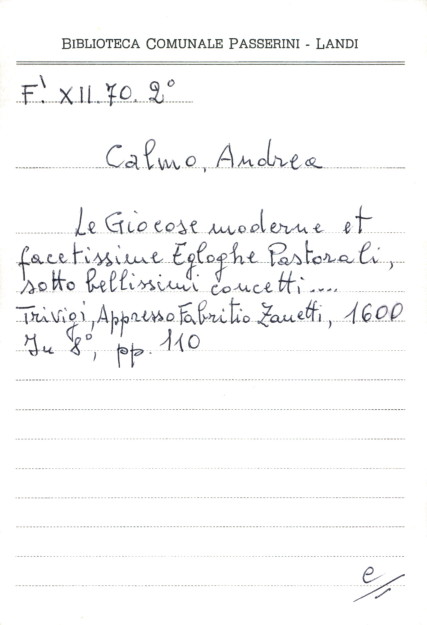 BIBLIOTECA COMUNALE PASSERINI - LANDI
F! XII. 70. 2°
Calmo, Andrea
Le Giocose moderne et
facetissime Egloghe Pastorali,
sotto bellissimi concetti....
Trivigi, Appresso Fabritio Zanetti, 1600
In 8°, pp. 110
e